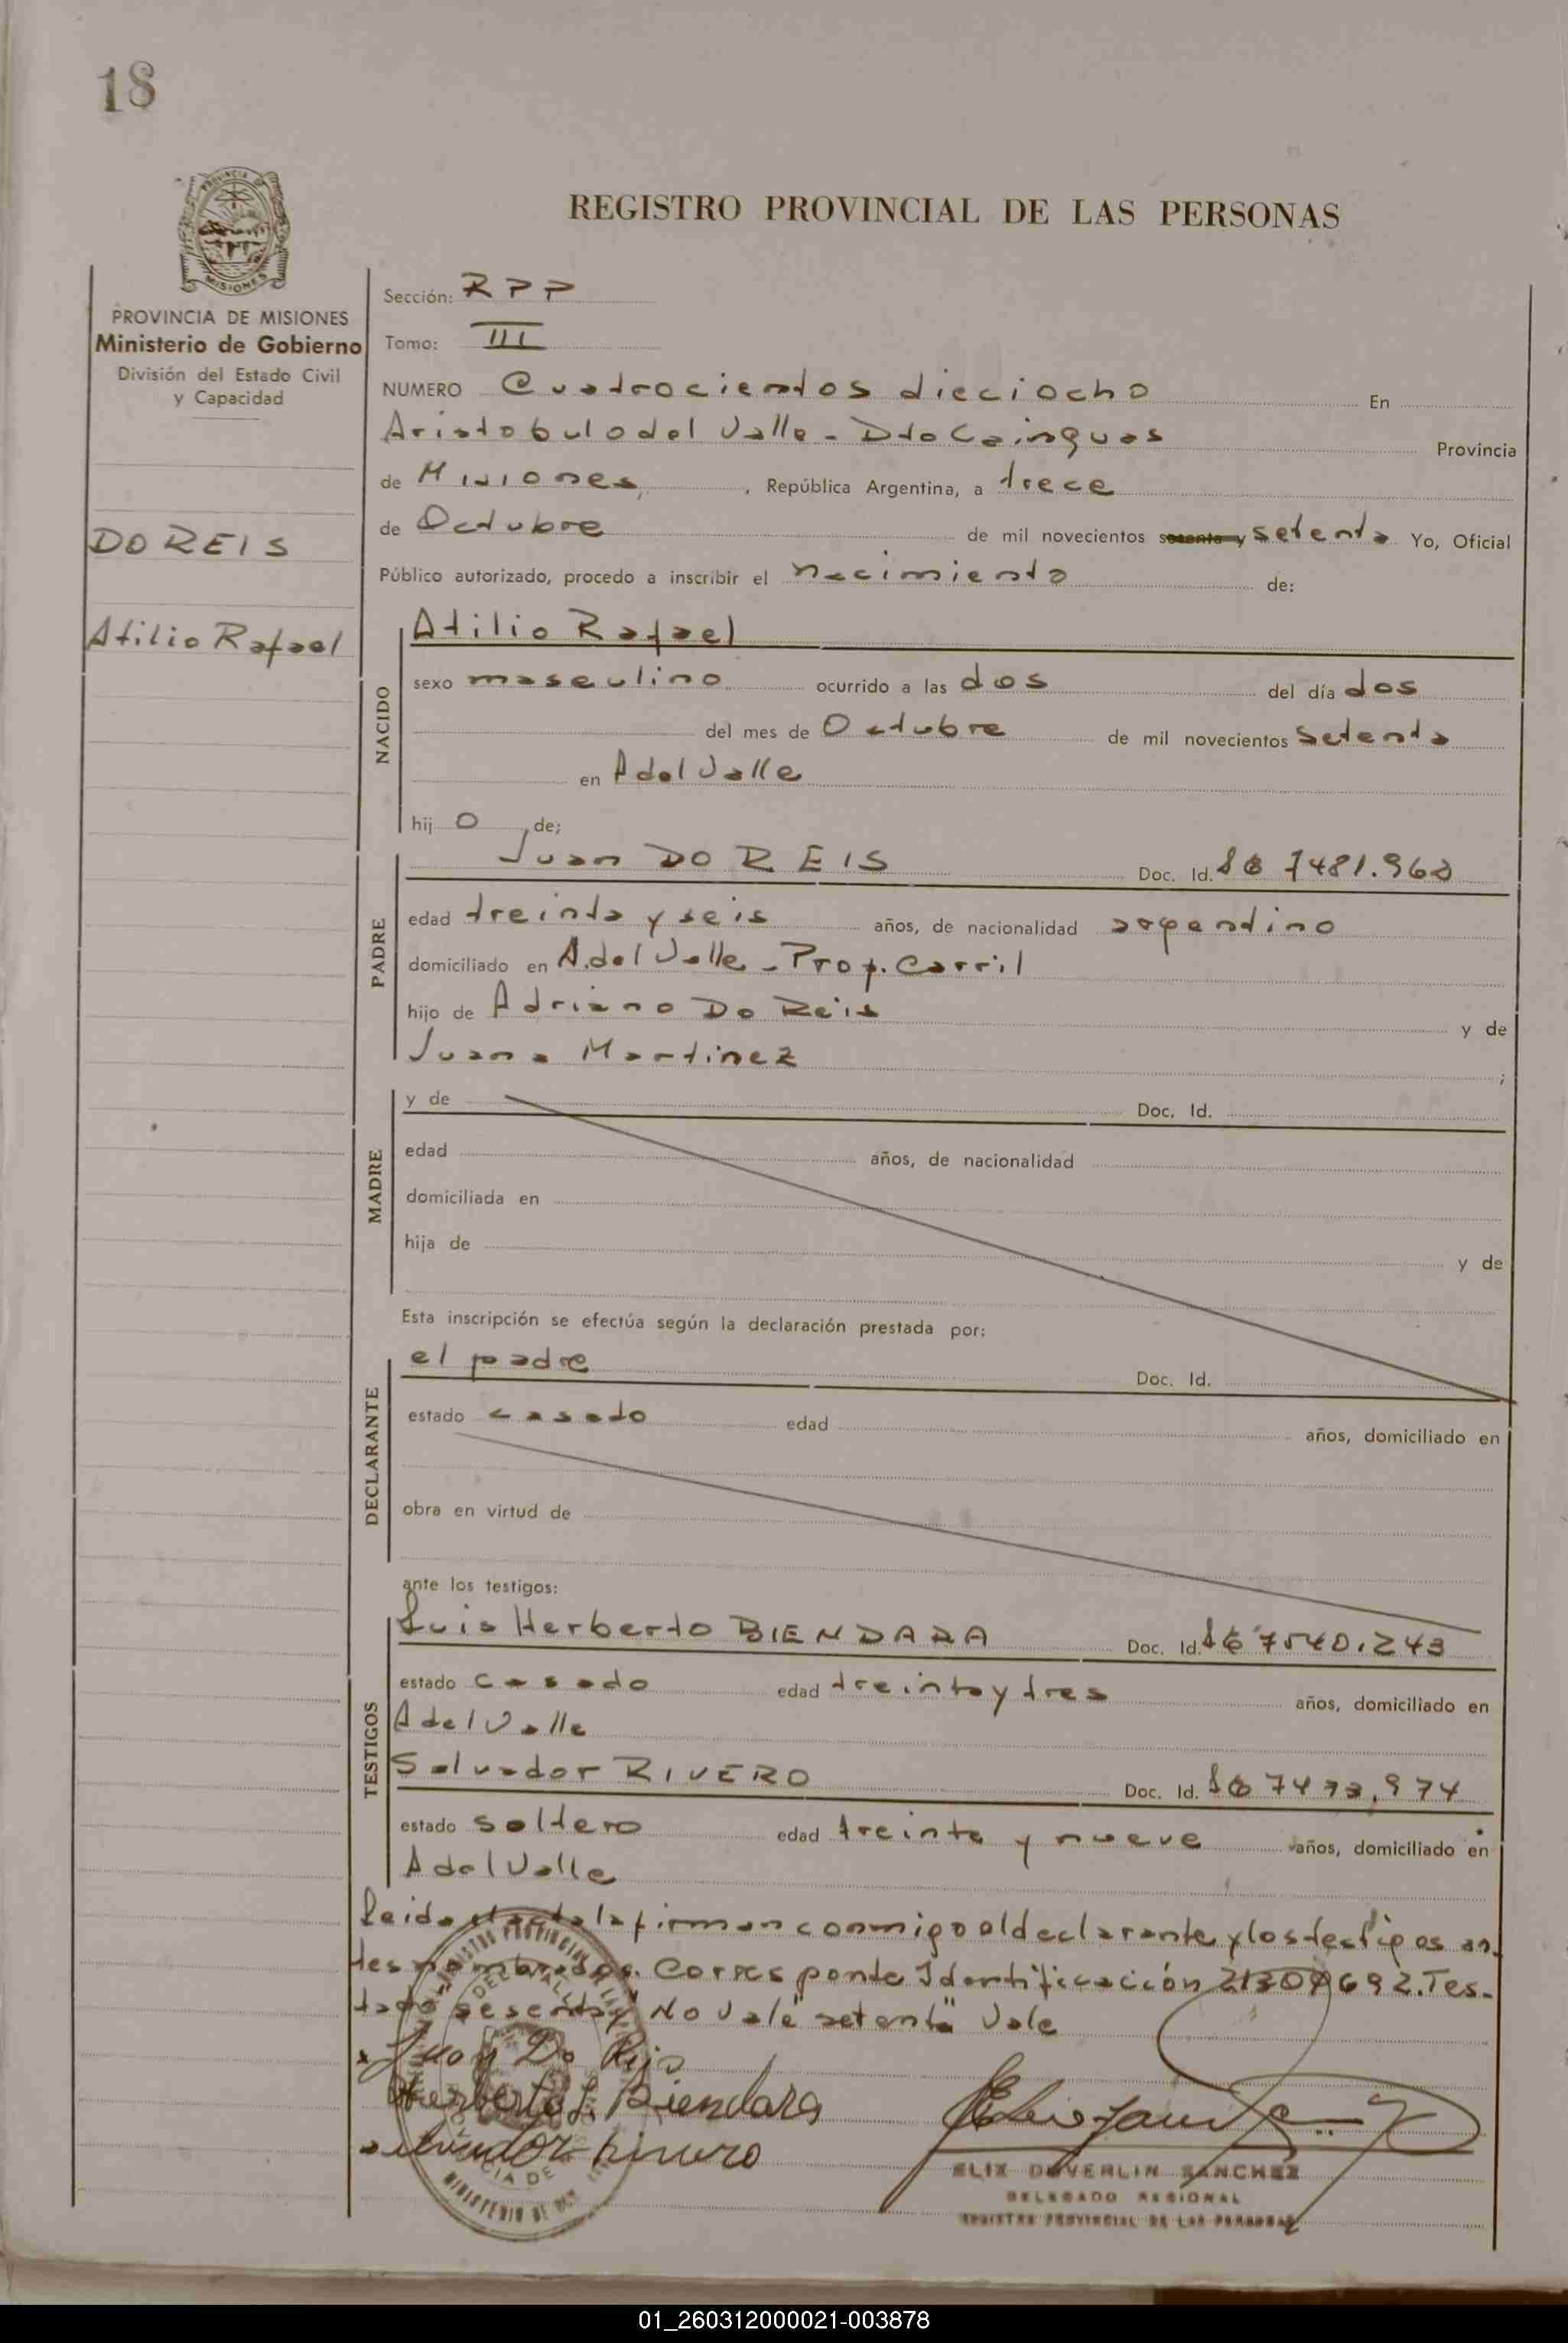 18
PROVINCIA DE
MISIONES
REGISTRO PROVINCIAL DE LAS PERSONAS
PROVINCIA DE MISIONES
Ministerio de Gobierno
División del Estado Civil
y Capacidad
DO REIS
Atilio Rafael
Sección: RPP
Tomo: III
NUMERO Cuatrocientos dieciocho En
Aristobulo del Valle - Dto Cainguas Provincia
de Misiones, República Argentina, a trece
de Octubre de mil novecientos sesenta y setenta Yo, Oficial
Público autorizado, procedo a inscribir el nacimiento de:
NACIDO
Atilio Rafael
sexo masculino ocurrido a las dos del día dos
del mes de Octubre de mil novecientos setenta
en A del Valle
hij o de;
PADRE
Juan DO REIS Doc. Id. 7481.962
edad treinta y seis años, de nacionalidad argentino
domiciliado en A. del Valle - Prop. Carril
hijo de Adriano Do Reis y de
Juana Martinez ;
MADRE
y de Doc. Id.
edad años, de nacionalidad
domiciliada en
hija de y de
Esta inscripción se efectúa según la declaración prestada por:
DECLARANTE
el padre Doc. Id.
estado casado edad años, domiciliado en
obra en virtud de
ante los testigos:
TESTIGOS
Luis Herberto BIENDARA Doc. Id. 7540.243
estado casado edad treinta y tres años, domiciliado en
A del Valle
Salvador RIVERO Doc. Id. 7473,974
estado soltero edad treinta y nueve años, domiciliado en
A del Valle
Leida el acta la firman conmigo el declarante y los testigos an-
tes nombrados. Corresponde Identificación 21309692. Tes-
tado "sesenta y" No Vale "setenta" Vale
Juan Do Reis
Herberto L. Biendara
Salvador Rivero
ELIX DUVERLIN SANCHEZ
DELEGADO REGIONAL
REGISTRO PROVINCIAL DE LAS PERSONAS
01_260312000021-003878